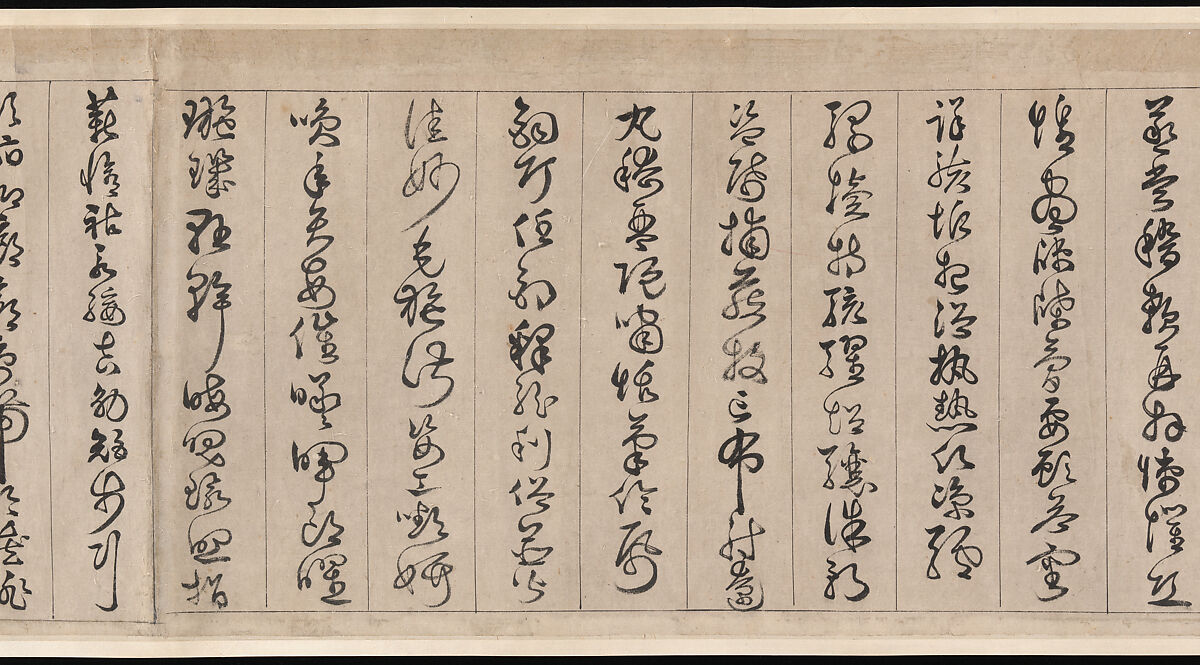 蒸嘗稽顙再拜悚懼恐
惶牋牒簡要顧答審
詳骸垢想浴執熱願涼驢
騾犢特駭躍超驤誅斬
盜賊捕獲叛亡布射遼
丸嵇琴阮嘯恬筆倫紙
鈞巧任釣釋紛利俗並皆
佳妙毛施淑姿工顰妍
笑年矢每催曦暉朗曜
璇璣懸斡晦魄環照指
薪修祜永綏吉劭矩步引
領俯仰廊廟束帶矜莊徘